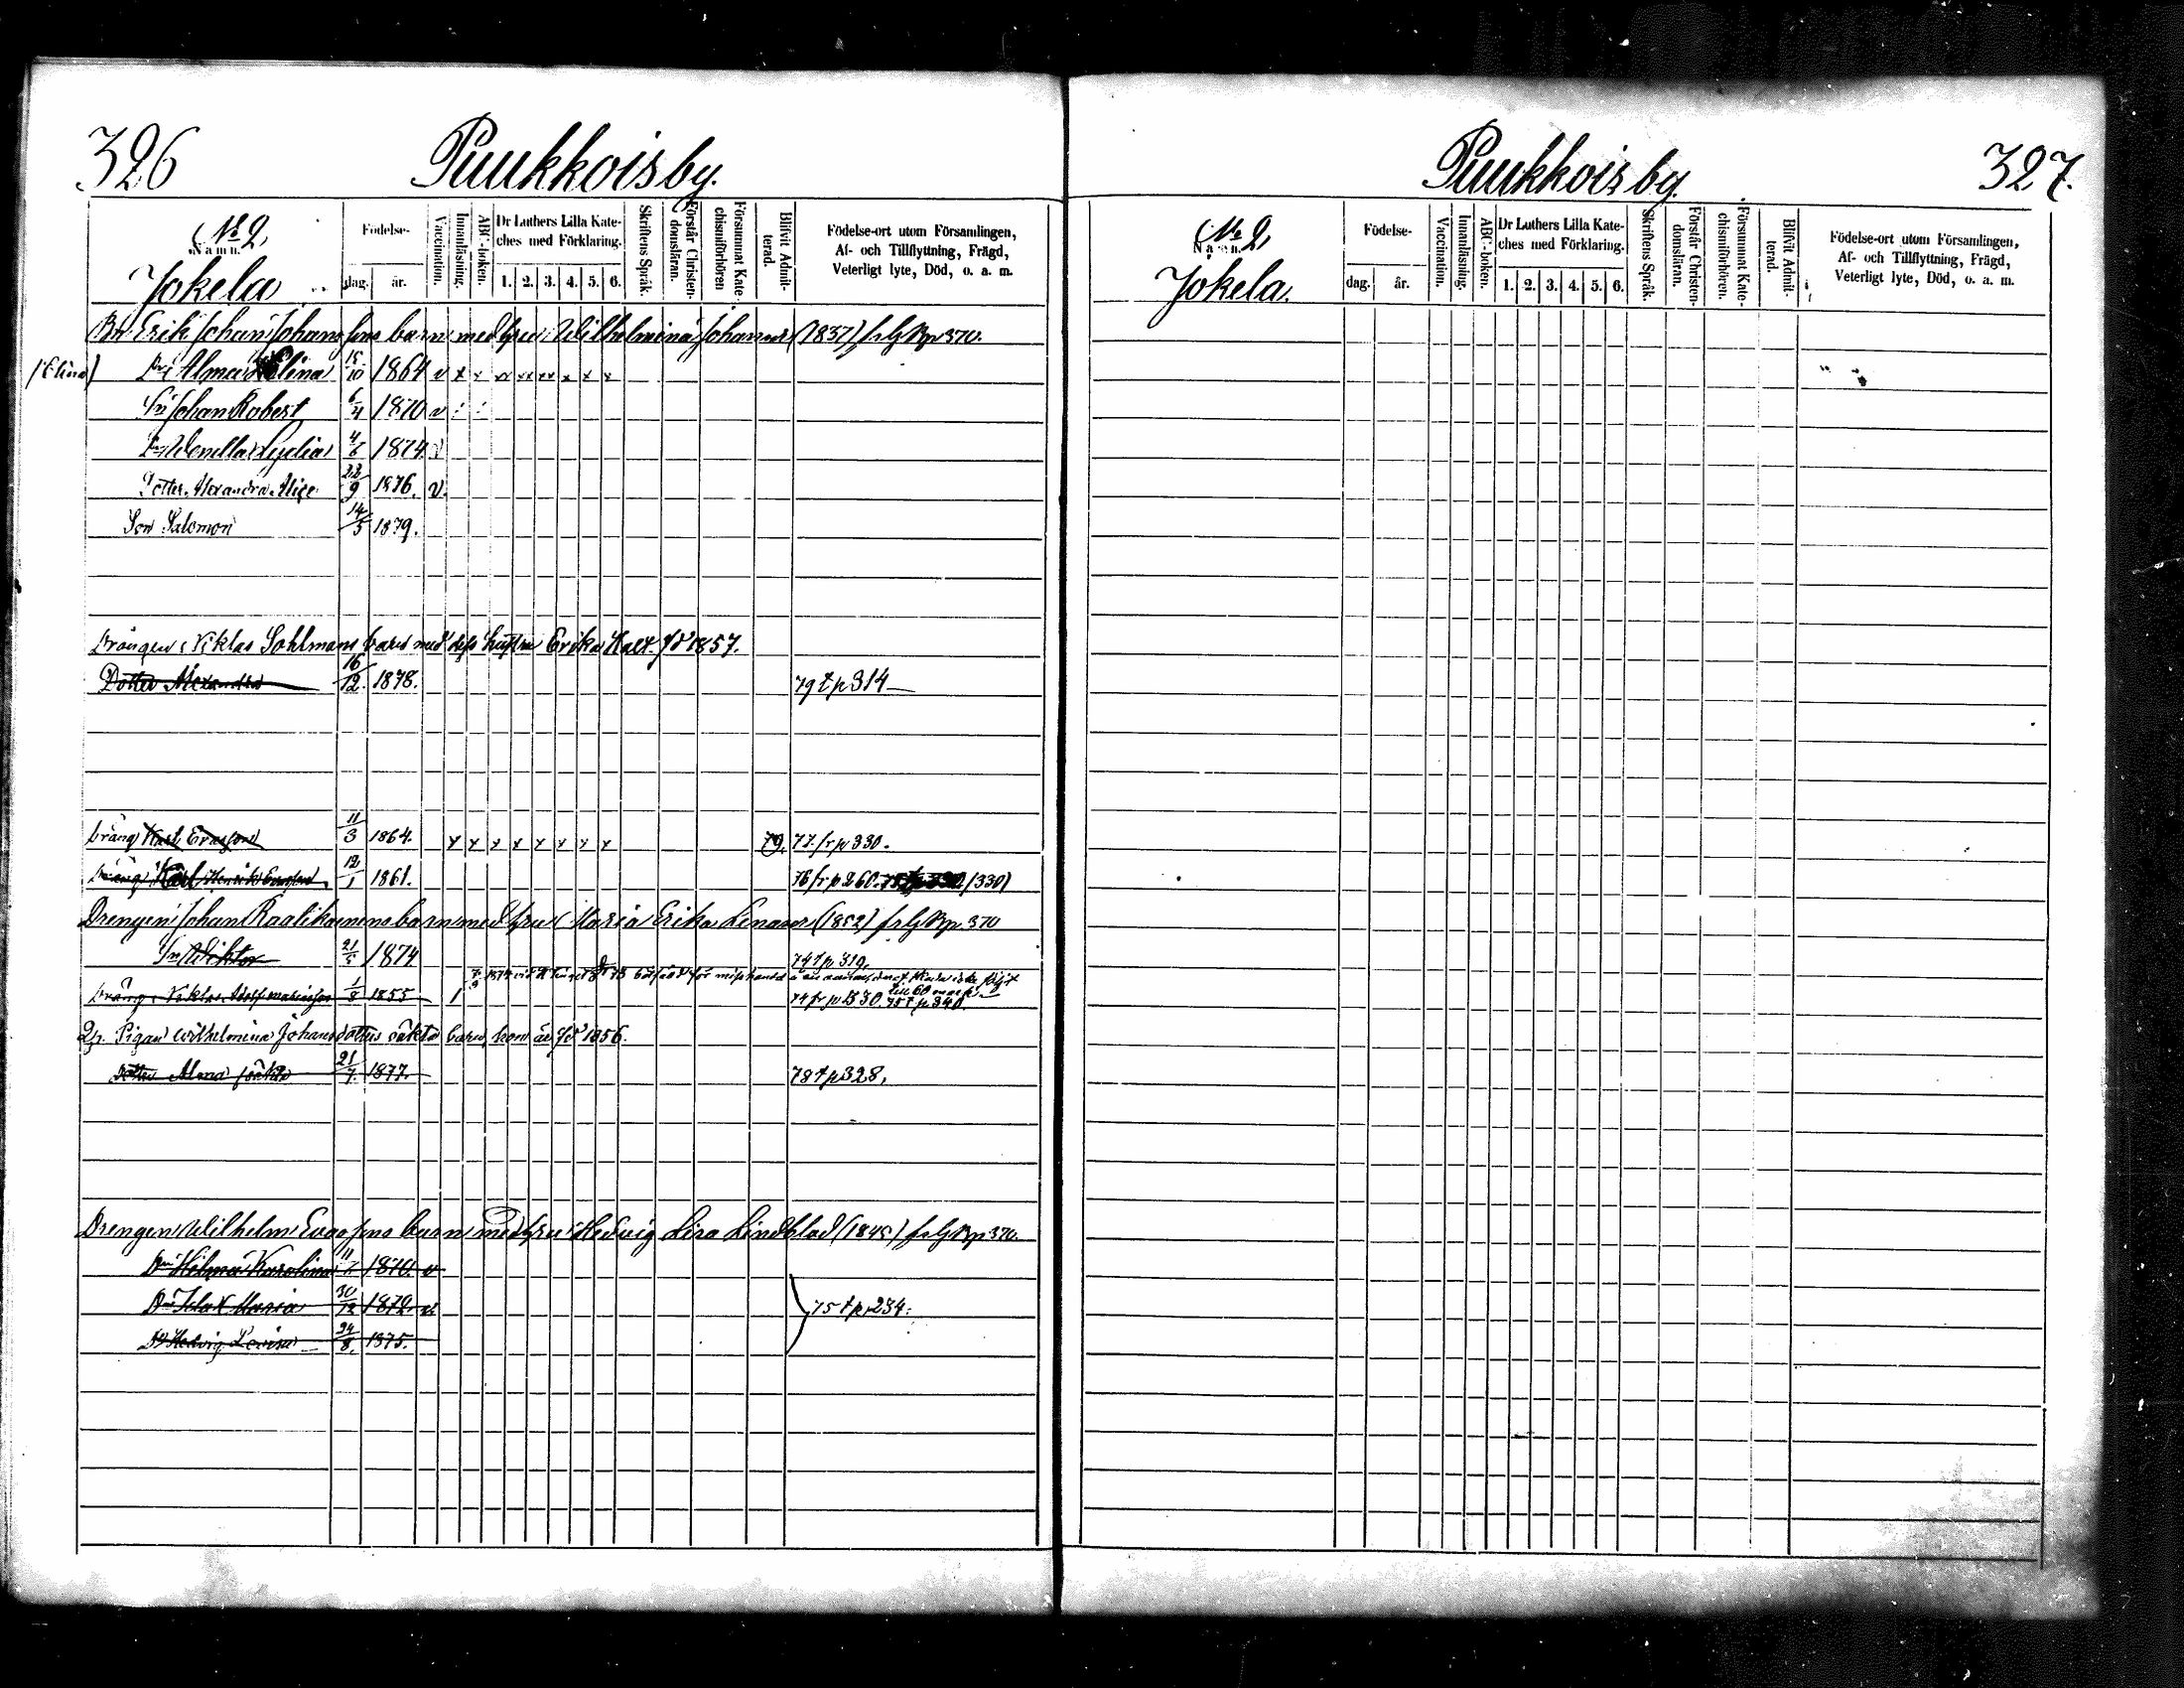 326
Puukkois by.
No 2,
Namn.
Jokela
Födelse-
dag.
år.
Vaccination.
Innanläsning.
ABC-boken.
Dr Luthers Lilla Kate-
ches med Förklaring.
1. 2. 3. 4. 5. 6.
Skriftens Språk.
Förstår Christen-
domsläran.
Försummat Kate-
chismiförhören
Blifvit Admit-
terad.
Födelse-ort utom Församlingen,
Af- och Tillflyttning, Frägd,
Veterligt lyte, Död, o. a. m.
Bn Erik Johan Johanssons barn med hru Wilhelmina Johansdr (1837)
(Elina) Dr Alma Elina 15/10 1864 v x x xx xx xx x x x
Sn Johan Robert 6/4 1870 v
Dr Wendla Lydia 4/6 1874 v
Dotter Alexandra Alice 22/9 1876. v.
Son Salomon 14/5 1879.
Drängen Niklas Sohlmans barn med dess hustru Erika Kalt. fd 1857.
Dotter Alexandra 16/12 1878. 79 t p 314
Dräng Karl Ersson 11/3 1864. x x x x x x x x 79. 77 fr p 330.
Dräng Karl Henrik 12/1 1861. 76 fr p 260. (330)
Drengen Johan Raalikainens barn med hru Maria Erika Lenasdr (1852)
Sn Wiktor 21/5 1874 74 t p 319.
till 60 mark
Dräng Niklas Adolf 1/8 1855 1 74 fr p 330. 75 t p 340.
Pigan Wilhelmina Johansdotters oäkta barn, hon är fd 1856.
Dotter Alma oäkta 21/7. 1877. 78 t p 328.
Drengen Wilhelm barn med hru Hedvig Lisa Lindblad (1845)
Dr Hilma Karolina 11/7 1870. v
Dr Ida Maria 30/12 1872. v 75 t p 234.
Dr Hedvig Lovisa 24/8. 1875.
Puukkois by.
327.
No 2,
Namn.
Jokela.
Födelse-
dag.
år.
Vaccination.
Innanläsning.
ABC-boken.
Dr Luthers Lilla Kate-
ches med Förklaring.
1. 2. 3. 4. 5. 6.
Skriftens Språk.
Förstår Christen-
domsläran.
Försummat Kate-
chismiförhören.
Blifvit Admit-
terad.
Födelse-ort utom Församlingen,
Af- och Tillflyttning, Frägd,
Veterligt lyte, Död, o. a. m.